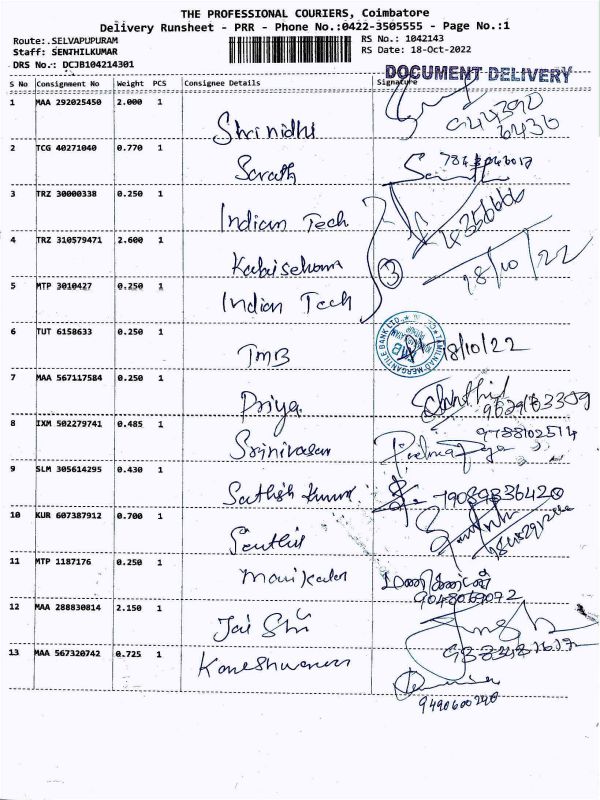 THE PROFESSIONAL COURIERS, Coimbatore
Delivery Runsheet - PRR - Phone No.:0422-3505555 - Page No.:1
Route:.SELVAPUPURAM RS No.: 1042143
Staff: SENTHILKUMAR RS Date: 18-Oct-2022
DRS No.: DCJB104214301
DOCUMENT DELIVERY
S No Consignment No Weight PCS Consignee Details Signature
1 MAA 292025450 2.000 1
Shrinidhi
2 TCG 40271040 0.770 1
Sarath
3 TRZ 30000338 0.250 1
Indian Tech
4 TRZ 310579471 2.600 1
3
18/10/22
5 MTP 3010427 0.250 1
Indian Tech
6 TUT 6158633 0.250 1
TMB 18/10/22
TAMILNAD MERCANTILE BANK LTD.
7 MAA 567117584 0.250 1
Priya
8 IXM 502279741 0.485 1
9788102514
Srinivasan
9 SLM 305614295 0.430 1
Sathish Kumar
10 KUR 607387912 0.700 1
Senthil
11 MTP 1187176 0.250 1
மணிகண்டன்
9048069092
12 MAA 288830814 2.150 1
Jai Shri
13 MAA 567320742 0.725 1
9490600240